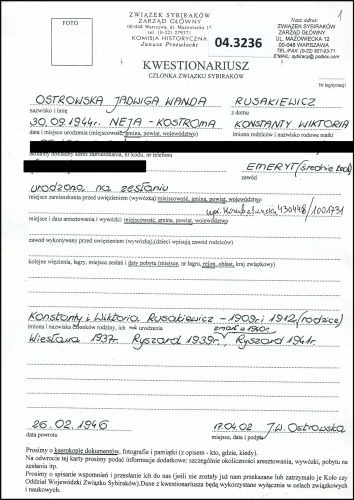 1
FOTO
ZWIĄZEK SYBIRAKÓW
ZARZĄD GŁÓWNY
00-048 Warszawa, ul. Mazowiecka 12
KOMISJA HISTORYCZNA
Janusz Przewłocki
04.3236
Nasz adres:
ZWIĄZEK SYBIRAKÓW
ZARZĄD GŁÓWNY
UL. MAZOWIECKA 12
00-048 WARSZAWA
TEL./FAX. (0-22) 827-93-71
KWESTIONARIUSZ
CZŁONKA ZWIĄZKU SYBIRAKÓW
Nr legitymacji
OSTROWSKA JADWIGA WANDA RUSAKIEWICZ
nazwisko i imię z domu
30.09.1944r. NEJA - KOSTROMA KONSTANTY WIKTORIA
data i miejsce urodzenia (miejscowość, gmina, powiat, województwo) imiona rodziców i nazwisko rodowe matki
dokładny adres zamieszkania, nr kodu, nr telefonu
EMERYT (średnie tech)
zawód
urodzona na zesłaniu
miejsce zamieszkania przed uwięzieniem (wywózką) miejscowość, gmina, powiat, województwo
miejsce i data aresztowania i wywózki: miejscowość, gmina, powiat, województwo
zawód wykonywany przed uwięzieniem (wywózką),(dzieci wpisują zawód rodziców)
kolejne więzienia, łagry, miejsca zesłań i daty pobytu (miejsce, nr łagru, rejon, obłast, kraj związkowy)
Konstanty i Wiktoria Rusakiewicz - 1909r i 1912r (rodzice)
imiona i nazwiska członków rodziny, ich rok urodzenia zmarł w 1940r.
Wiesława 1937r. Ryszard 1939r. Ryszard 1941r.
26.02.1946 17.04.02 J.W. Ostrowska
data powrotu miejsce, data i podpis
Prosimy o kserokopie dokumentów, fotografie i pamiątki (z opisem - kto, gdzie, kiedy).
Na odwrocie tej karty prosimy podać informacje dodatkowe: szczególnie okoliczności aresztowania, wywózki, pobytu na
zesłaniu itp.
Prosimy o spisanie wspomnień i przesłanie ich do nas (jeśli nie zostały już nam przekazane lub zatrzymało je Koło czy
Oddział Wojewódzki Związku Sybiraków).Dane z kwestionariusza będą wykorzystane wyłącznie w celach związkowych i
naukowych.